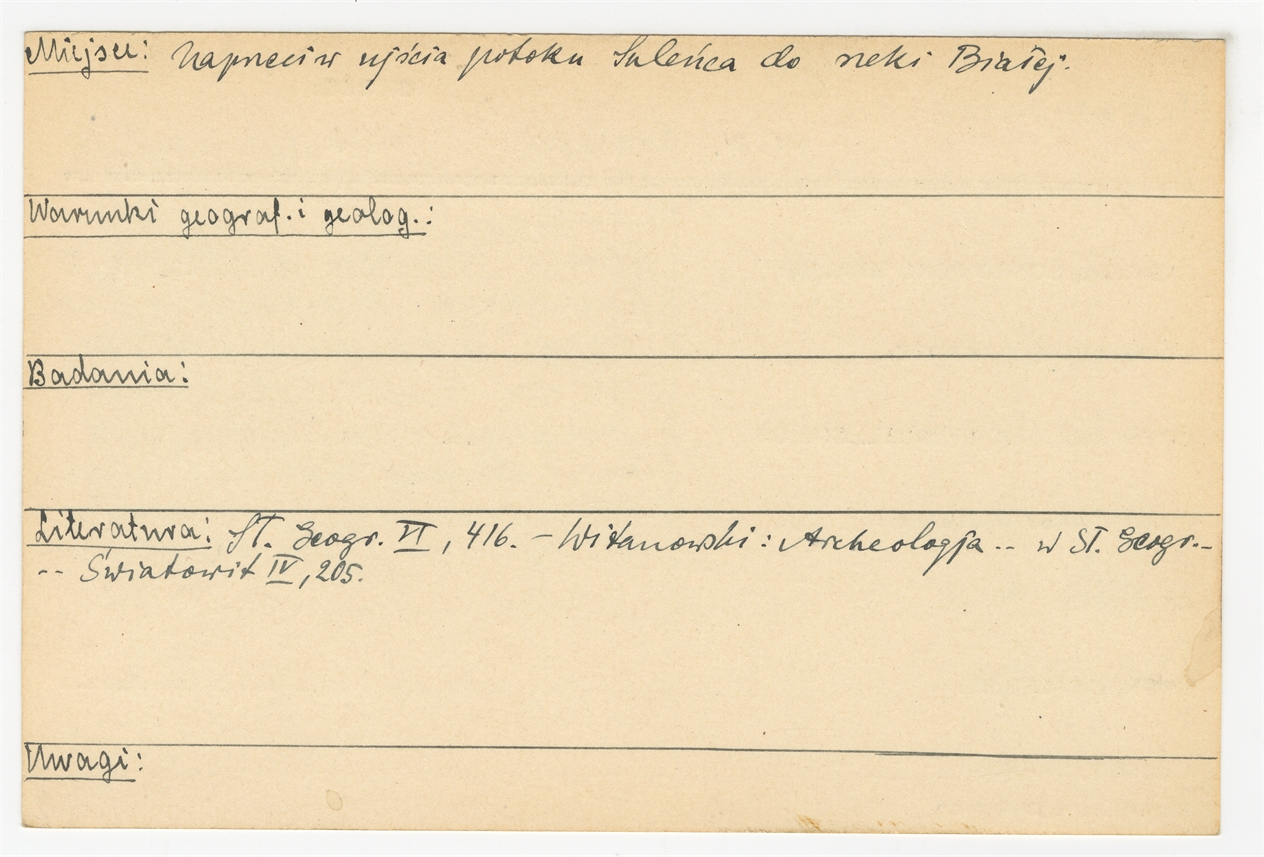 Miejsce: Naprzeciw ujścia potoku Suleńca do rzeki Białej.
Warunki geograf. i geolog.:
Badania:
Literatura: Sł. Geogr. VI, 416. – Witanowski: Archeologja -- w Sł. Geogr. –
-- Światowit IV, 205.
Uwagi: